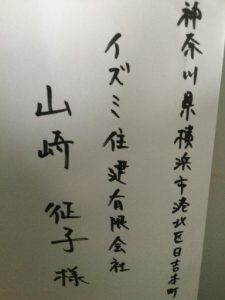 神奈川県横浜市港北区日吉本町
イズミ住建有限会社
山崎 征子 様